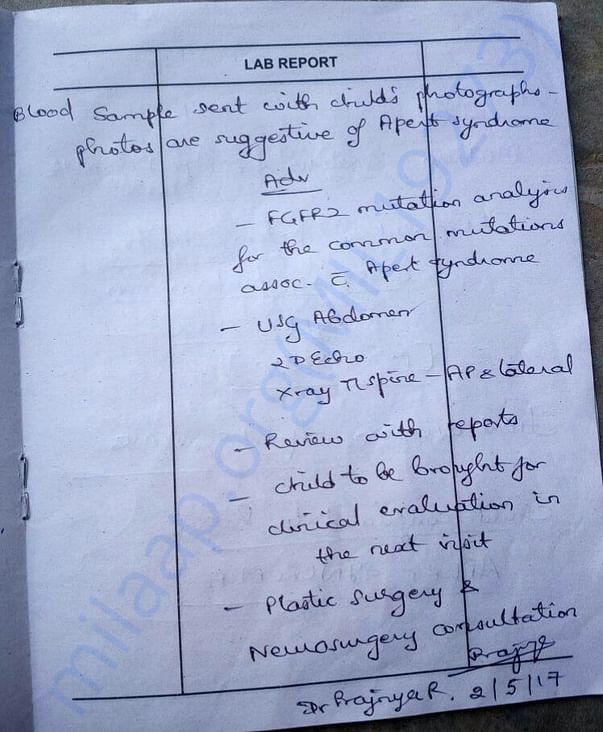 LAB REPORT
Blood Sample sent with child's photographs -
photos are suggestive of Apert syndrome
Adv
- FGFR2 mutation analysis
for the common mutations
assoc. c̄ Apert syndrome
- USG Abdomen
2D Echo
Xray TLspine - AP & lateral
- Review with reports
- child to be brought for
clinical evaluation in
the next visit
- Plastic surgery &
Neurosurgery consultation
Dr Prajnya R. 2/5/17
milaap.org